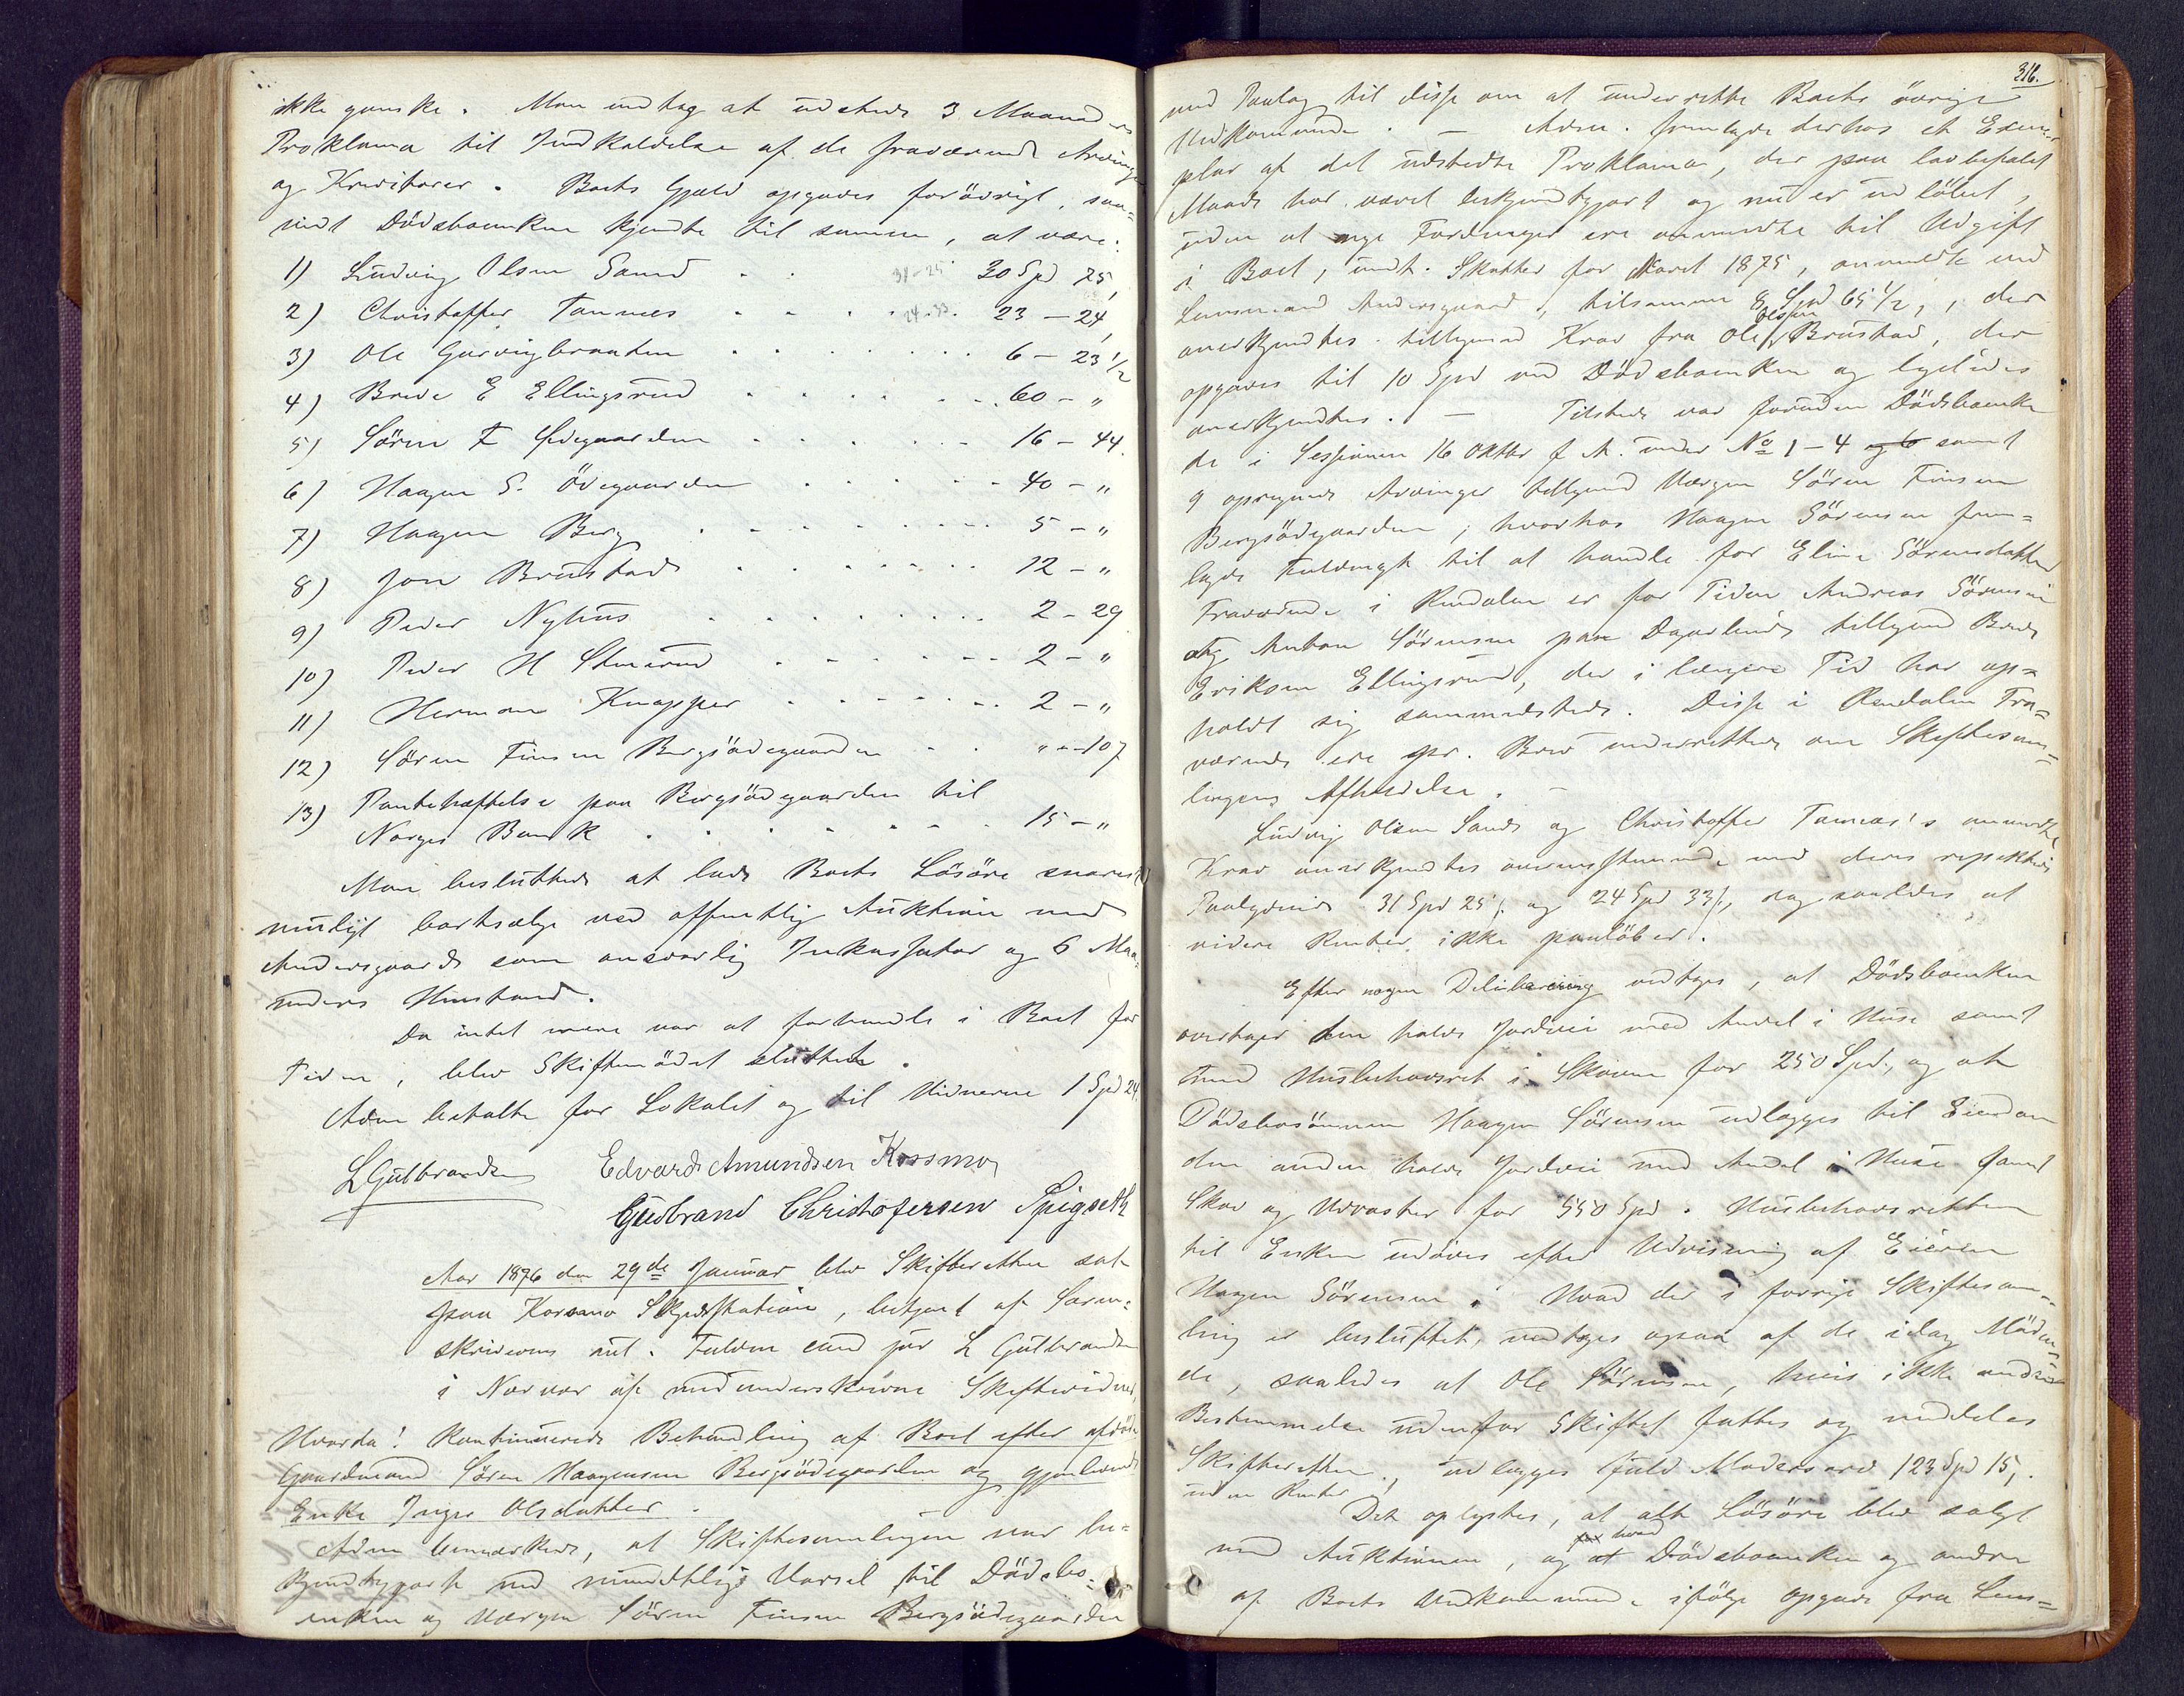 ikke ganske. Man vedtog at udstede 3 Maaneders
Proklama til Indkaldelse af de fraværende Arvinger
og Kreditorer. Boets Gjæld opgaves forövrigt, saa-
vidt Dödsboenken kjendte til samme, at være:
1) Ludvig Olsen Sand . . 31-25 30 Spd 75,
2) Christoffer Tannæs . . . 24.33. 23 - 24,
3) Ole Garvigbraaten . . . . . . 6 - 23 1/2
4) Brede E Ellingsrud . . . . . . 60 - „
5) Sören F Ödegaarden . . . . . 16 - 44.
6) Haagen S. Ödegaarden . . . . 40 - „
7) Haagen Berg . . . . . . . 5 - „
8) Jon Brustad . . . . . . 12 - „
9) Peder Nyhus . . . . . . 2 - 29
10) Peder H Stuerud . . . . . . 2 - „
11) Herman Knapper . . . . . . 2 - „
12) Sören Finsen Bergsödegaarden . . „ - 107
13) Pantehæftelse paa Bergsödegaarden til
Norges Bank . . . . . . 15 - „
Man besluttede at lade Boets Lösöre snarest
muligt bortsælge ved offentlig Auktion med
Andersgaard som ansvarlig Inkassator og 6 Maa-
neders Henstand.
Da intet mere var at forhandle i Boet for
Tiden, blev Skiftemödet sluttet.
Adm betalte for Lokalet og til Vidnerne 1 Spd 24,
LGulbrandsen Edvard Amundsen Kossmo
Gudbrand Christofersen Spigseth
Aar 1876 den 29de Januar blev Skifteretten sat
paa Korsmo Skydsstation, betjent af Soren-
skriverens aut. Fuldm cand jur L Gulbrandsen
i Nærvær af medunderskrevne Skiftevidner,
Hvorda! Kontinuerede Behandling af Boet efter afdöde
Gaardmand Sören Haagensen Bergsödegaarden og gjenlevende
Enke Inger Olsdatter.
Adm bemærkede, at Skiftesamlingen var be-
kjendtgjort ved mundtligt Varsel til Dödsbo-
enken og Værgen Sören Finsen Bergsödegaarden
316.
med Paalæg til disse om at underrette Boets övrige
Vedkommende. - Adm. fremlagde derhos et Exem-
plar af det udstedte Proklama, der paa lovbefalet
Maade har været bekjendtgjort og nu er udlöbet,
uden at nye Fordringer ere anmeldte til Udgift
i Boet, undt. Skatter for Aaret 1875, anmeldte ved
Lensmand Andersgaard, tilsammen 8 Spd 65 1/2, der
anerkjendtes tilligemed Krav fra Ole Olsen Brustad, der
opgaves til 10 Spd ved Dödsboenken og ligeledes
anerkjendtes. - Tilstede var foruden Dödsboenken
de i Sessionen 16 Oktbr f. A. under No 1-4 og 6 samt
9 opregnede Arvinger tilligemed Værgen Sören Finsen
Bergsödegaarden, hvorhos Haagen Sörensen frem-
lagde Fuldmagt til at handle for Eline Sörensdatter
Fraværende i Rendalen er for Tiden Andreas Sörensen
og Anton Sörensen paa tilligemed Brede
Eriksen Ellingsrud, der i længere Tid har op-
holdt sig sammesteds. Disse i Rendalen Fra-
værende ere pr. Brev underrettede om Skiftesam-
lingens Afholdelse. -
Ludvig Olsen Sands og Christoffer Tannæs's anmeldte
Krav anerkjendtes overensstemmende med deres respektive
Paalydende 31 Spd 25 ß og 24 Spd 33 ß, og saaledes at
videre Renter ikke paalöber.
Efter nogen Deliberering vedtoges, at Dödsboenken
overtager den halve Jordvei med Andel i Huse samt
med Husbehovsret i Skoven for 250 Spd., og at
Dödsbosönnen Haagen Sörensen udlægges til Eiendom
den anden halve Jordvei med Andel i Huse samt
Skov og Udraster for 550 Spd. Husbehovsretten
til Enken udöves efter Udvisning af Eieren
Haagen Sörensen. Hvad der i forrige Skiftesam-
ling er besluttet, vedtoges ogsaa af de idag Mödende-
de, saaledes at Ole Sörensen, hvis ikke anden
Bestemmelse udenfor Skiftet fattes og meddeles
Skifteretten, udlægges fuld Mödrearv 123 Spd 15,.
uden Renter
Det oplystes, at alt Lösöre blev solgt
ved Auktionen, og at for hvad Dödsboenken og andre
af Boets Vedkommende ifölge Opgave fra Lens-